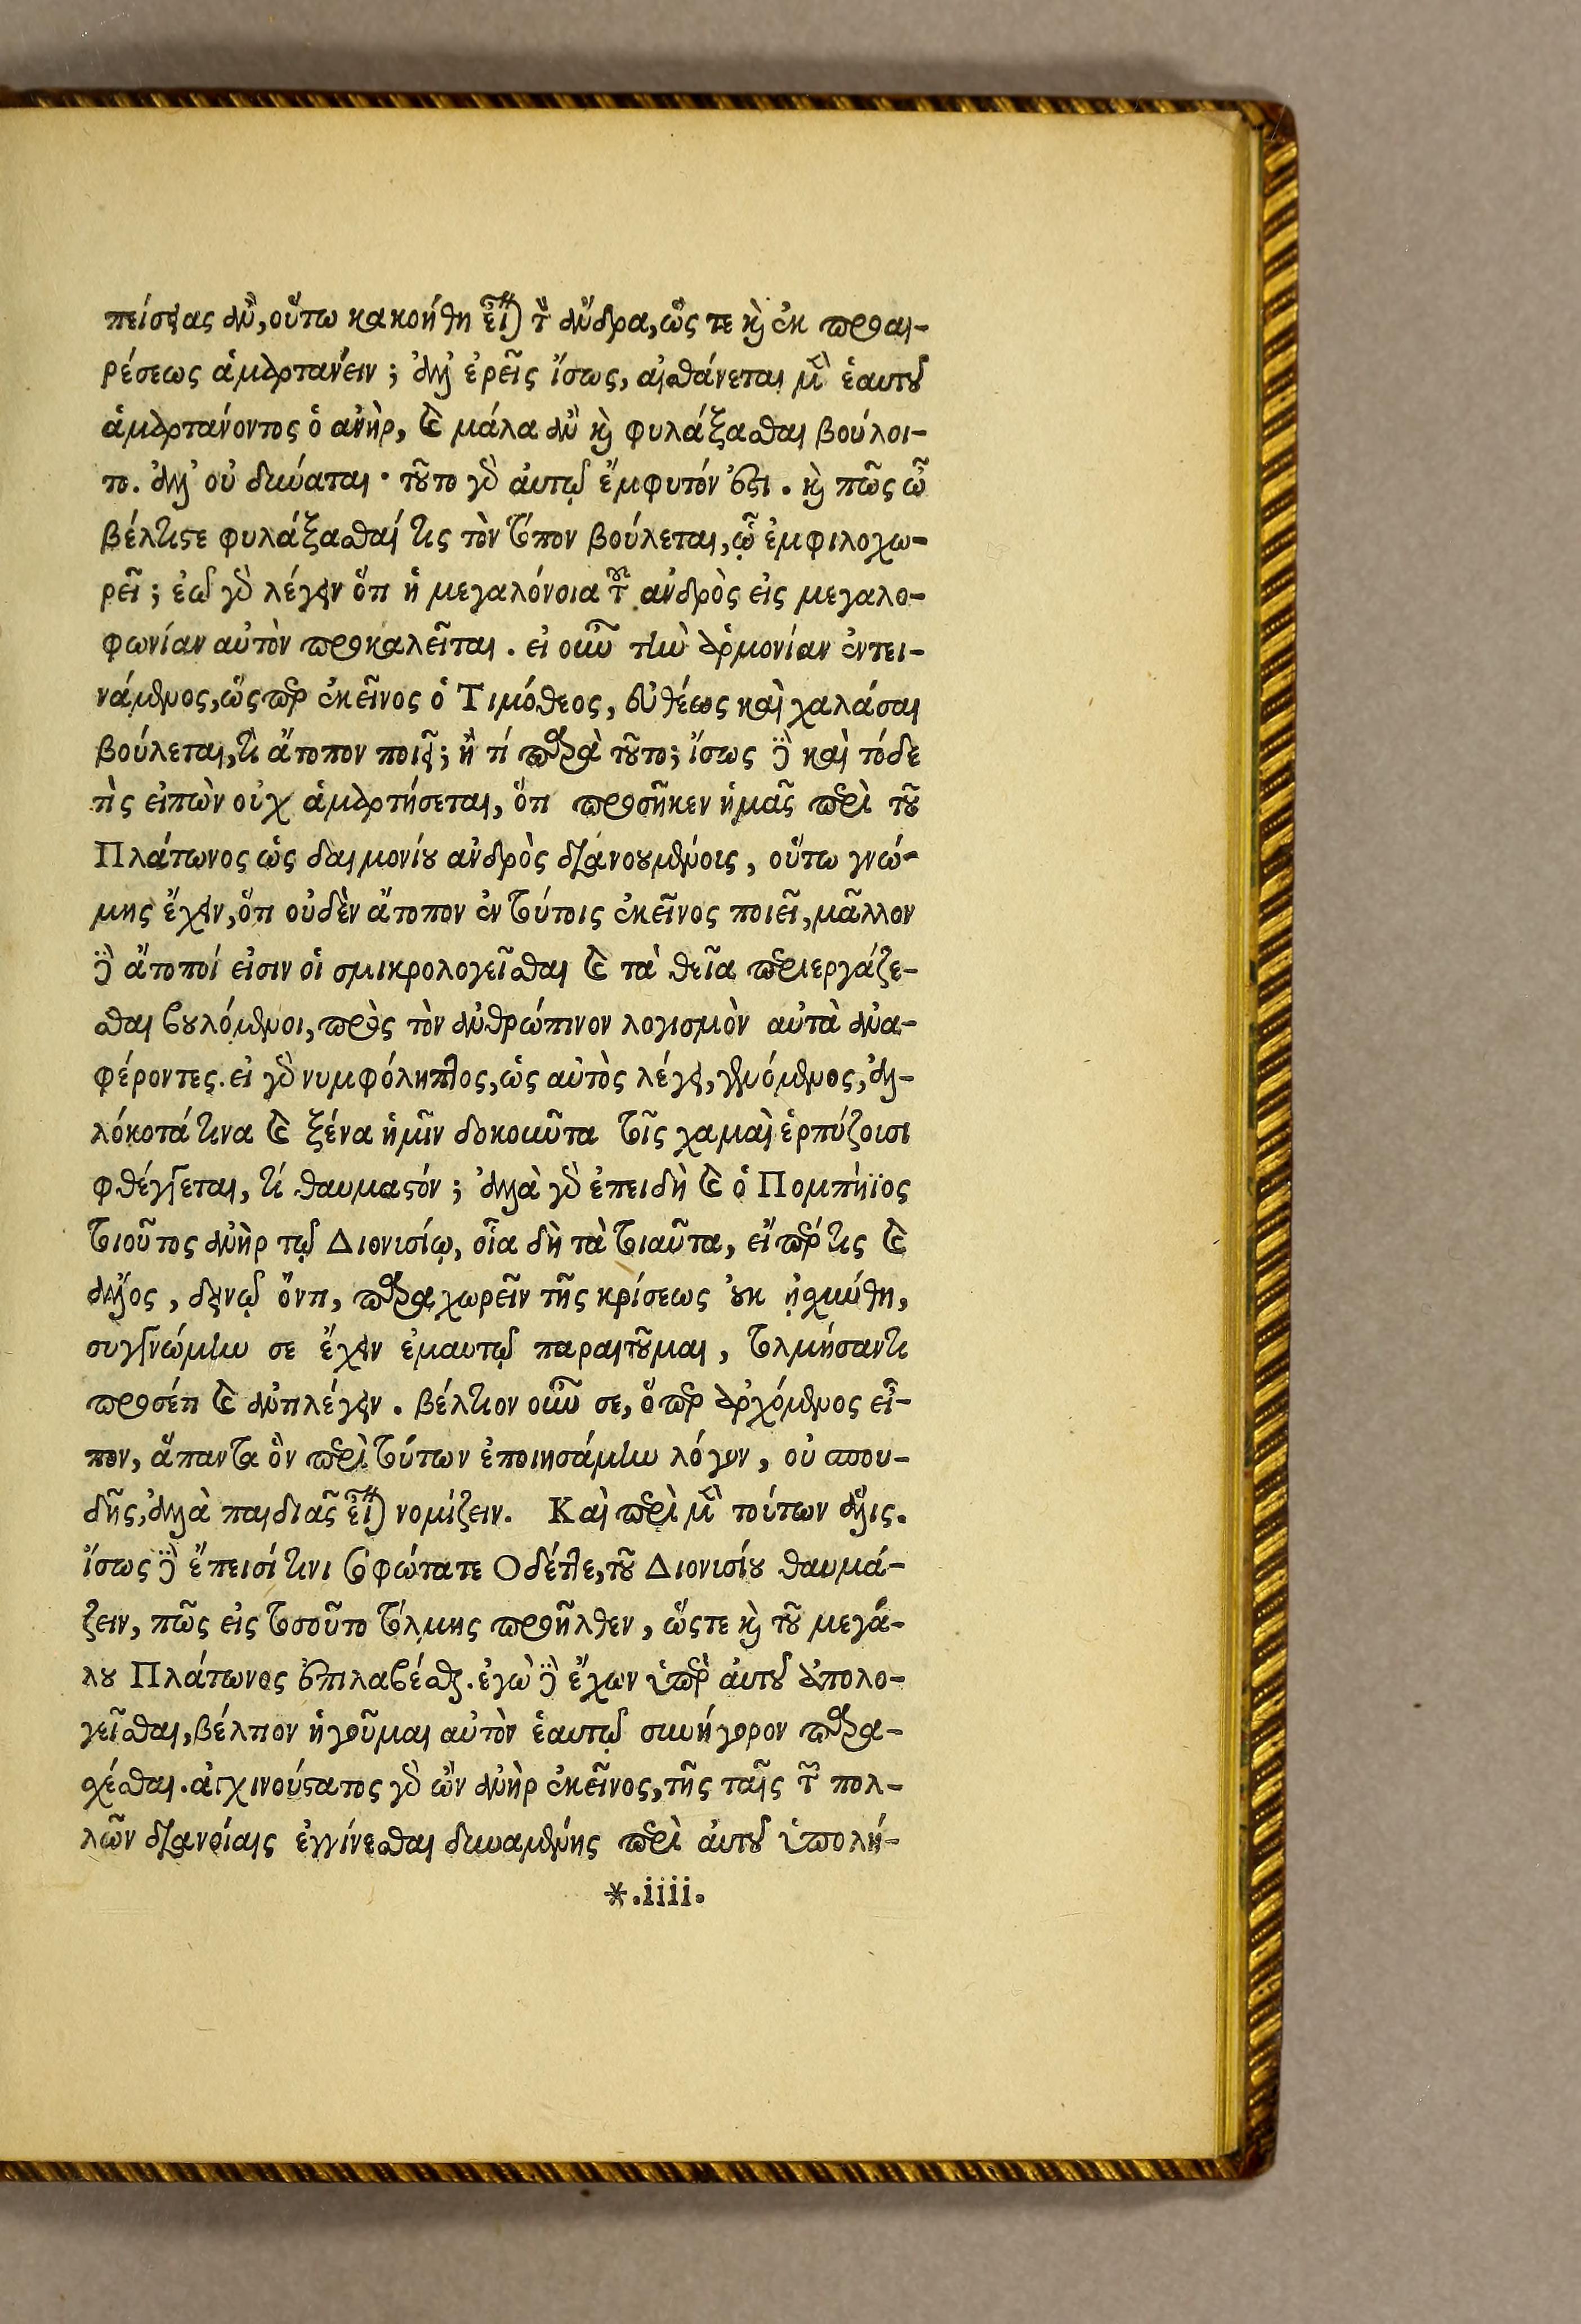 πείσειας ἂν, οὕτω κακοήθη εἶναι τὸν ἄνδρα, ὥς τε καὶ ἐκ προαι-
ρέσεως ἁμαρτανέιν; ἀλλ' ἐρεῖς ἴσως, αἰσθάνεται μὲν ἑαυτοῦ
ἁμαρτάνοντος ὁ ἀνὴρ, καὶ μάλα ἂν καὶ φυλάξασθαι βούλοι-
το. ἀλλ' οὐ δύναται· τοῦτο γὰρ ἀυτῷ ἔμφυτόν ἐστι. καὶ πῶς ὦ
βέλτιστε φυλάξασθαί τις τὸν τόπον βούλεται, ᾧ ἐμφιλοχω-
ρεῖ; ἐῶ γὰρ λέγειν ὅτι ἡ μεγαλόνοια τοῦ ἀνδρὸς εἰς μεγαλο-
φωνίαν αὐτὸν προκαλεῖται. εἰ οὖν τὴν ἁρμονίαν ἐντει-
νάμενος, ὥςπερ ἐκεῖνος ὁ Τιμόθεος, εὐθέως καὶ χαλάσαι
βούλεται, τὶ ἄτοπον ποιεῖ; ἢ τί παρὰ τοῦτο; ἴσως δὲ καὶ τόδε
τὶς εἰπὼν οὐχ ἁμαρτήσεται, ὅτι προσῆκεν ἡμᾶς περὶ τοῦ
Πλάτωνος ὡς δαιμονίου ἀνδρὸς διανοουμένοις, οὕτω γνώ-
μης ἔχειν, ὅτι οὐδὲν ἄτοπον ἐν τούτοις ἐκεῖνος ποιεῖ, μᾶλλον
δὲ ἄτοποί εἰσιν οἱ σμικρολογεῖσθαι καὶ τὰ θεῖα περιεργάζε-
σθαι βουλόμενοι, πρὸς τὸν ἀνθρώπινον λογισμὸν αὐτὰ ἀνα-
φέροντες. εἰ γὰρ νυμφόληπτος, ὡς αὐτὸς λέγει, γενόμενος, ἀλ-
λόκοτά τινα καὶ ξένα ἡμῖν δοκοῦντα τοῖς χαμαὶ ἑρπύζουσι
φθέγγεται, τί θαυμαστόν; ἀλλὰ γὰρ ἐπειδὴ καὶ ὁ Πομπήϊος
τοιοῦτος ἀνὴρ τῷ Διονισίῳ, οἷα δὴ τὰ τοιαῦτα, εἴπερ τις καὶ
ἄλλος, δεινῷ ὄντι, παραχωρεῖν τῆς κρίσεως οὐκ ᾐσχύνθη,
συγγνώμην σε ἔχειν ἐμαυτῷ παραιτοῦμαι, τολμήσαντι
προσέτι καὶ ἀντιλέγειν. βέλτιον οὖν σε, ὅπερ ἀρχόμενος εἶ-
πον, ἅπαντα ὃν περὶ τούτων ἐποιησάμην λόγον, οὐ σπου-
δῆς, ἀλλὰ παιδιᾶς εἶναι νομίζειν. Καὶ περὶ μὲν τούτων ἅλις.
ἴσως δὲ ἔπεισί τινι σοφώτατε Οδέτιε, τοῦ Διονισίου θαυμά-
ζειν, πῶς εἰς τοσοῦτο τόλμης προῆλθεν, ὥςτε καὶ τοῦ μεγά-
λου Πλάτωνος ἐπιλαβέσθαι. ἐγὼ δὲ ἔχων ὑπὲρ ἀυτοῦ ἀπολο-
γεῖσθαι, βέλτιον ἡγοῦμαι αὐτὸν ἑαυτῷ συνήγορον παρα-
σχέσθαι. ἀγχινούστατος γὰρ ὢν ἀνὴρ ἐκεῖνος, τῆς ταῖς τῶν πολ-
λῶν διανοίαις ἐγγίνεσθαι δυναμένης περὶ ἀυτοῦ ὑπολή-
*.iiii.